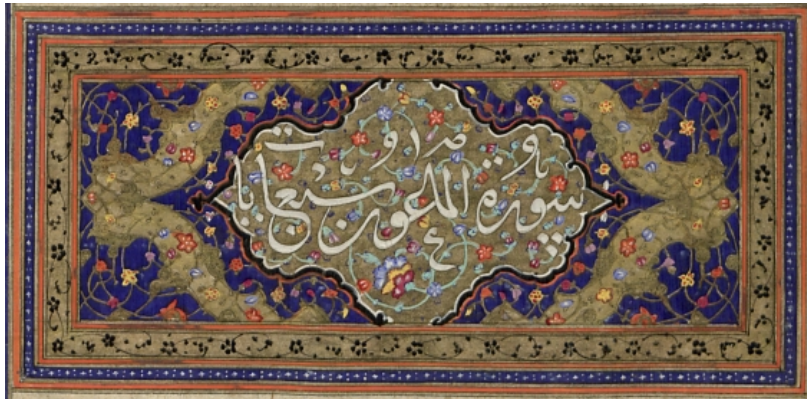 سورة الماعون سبع ايات